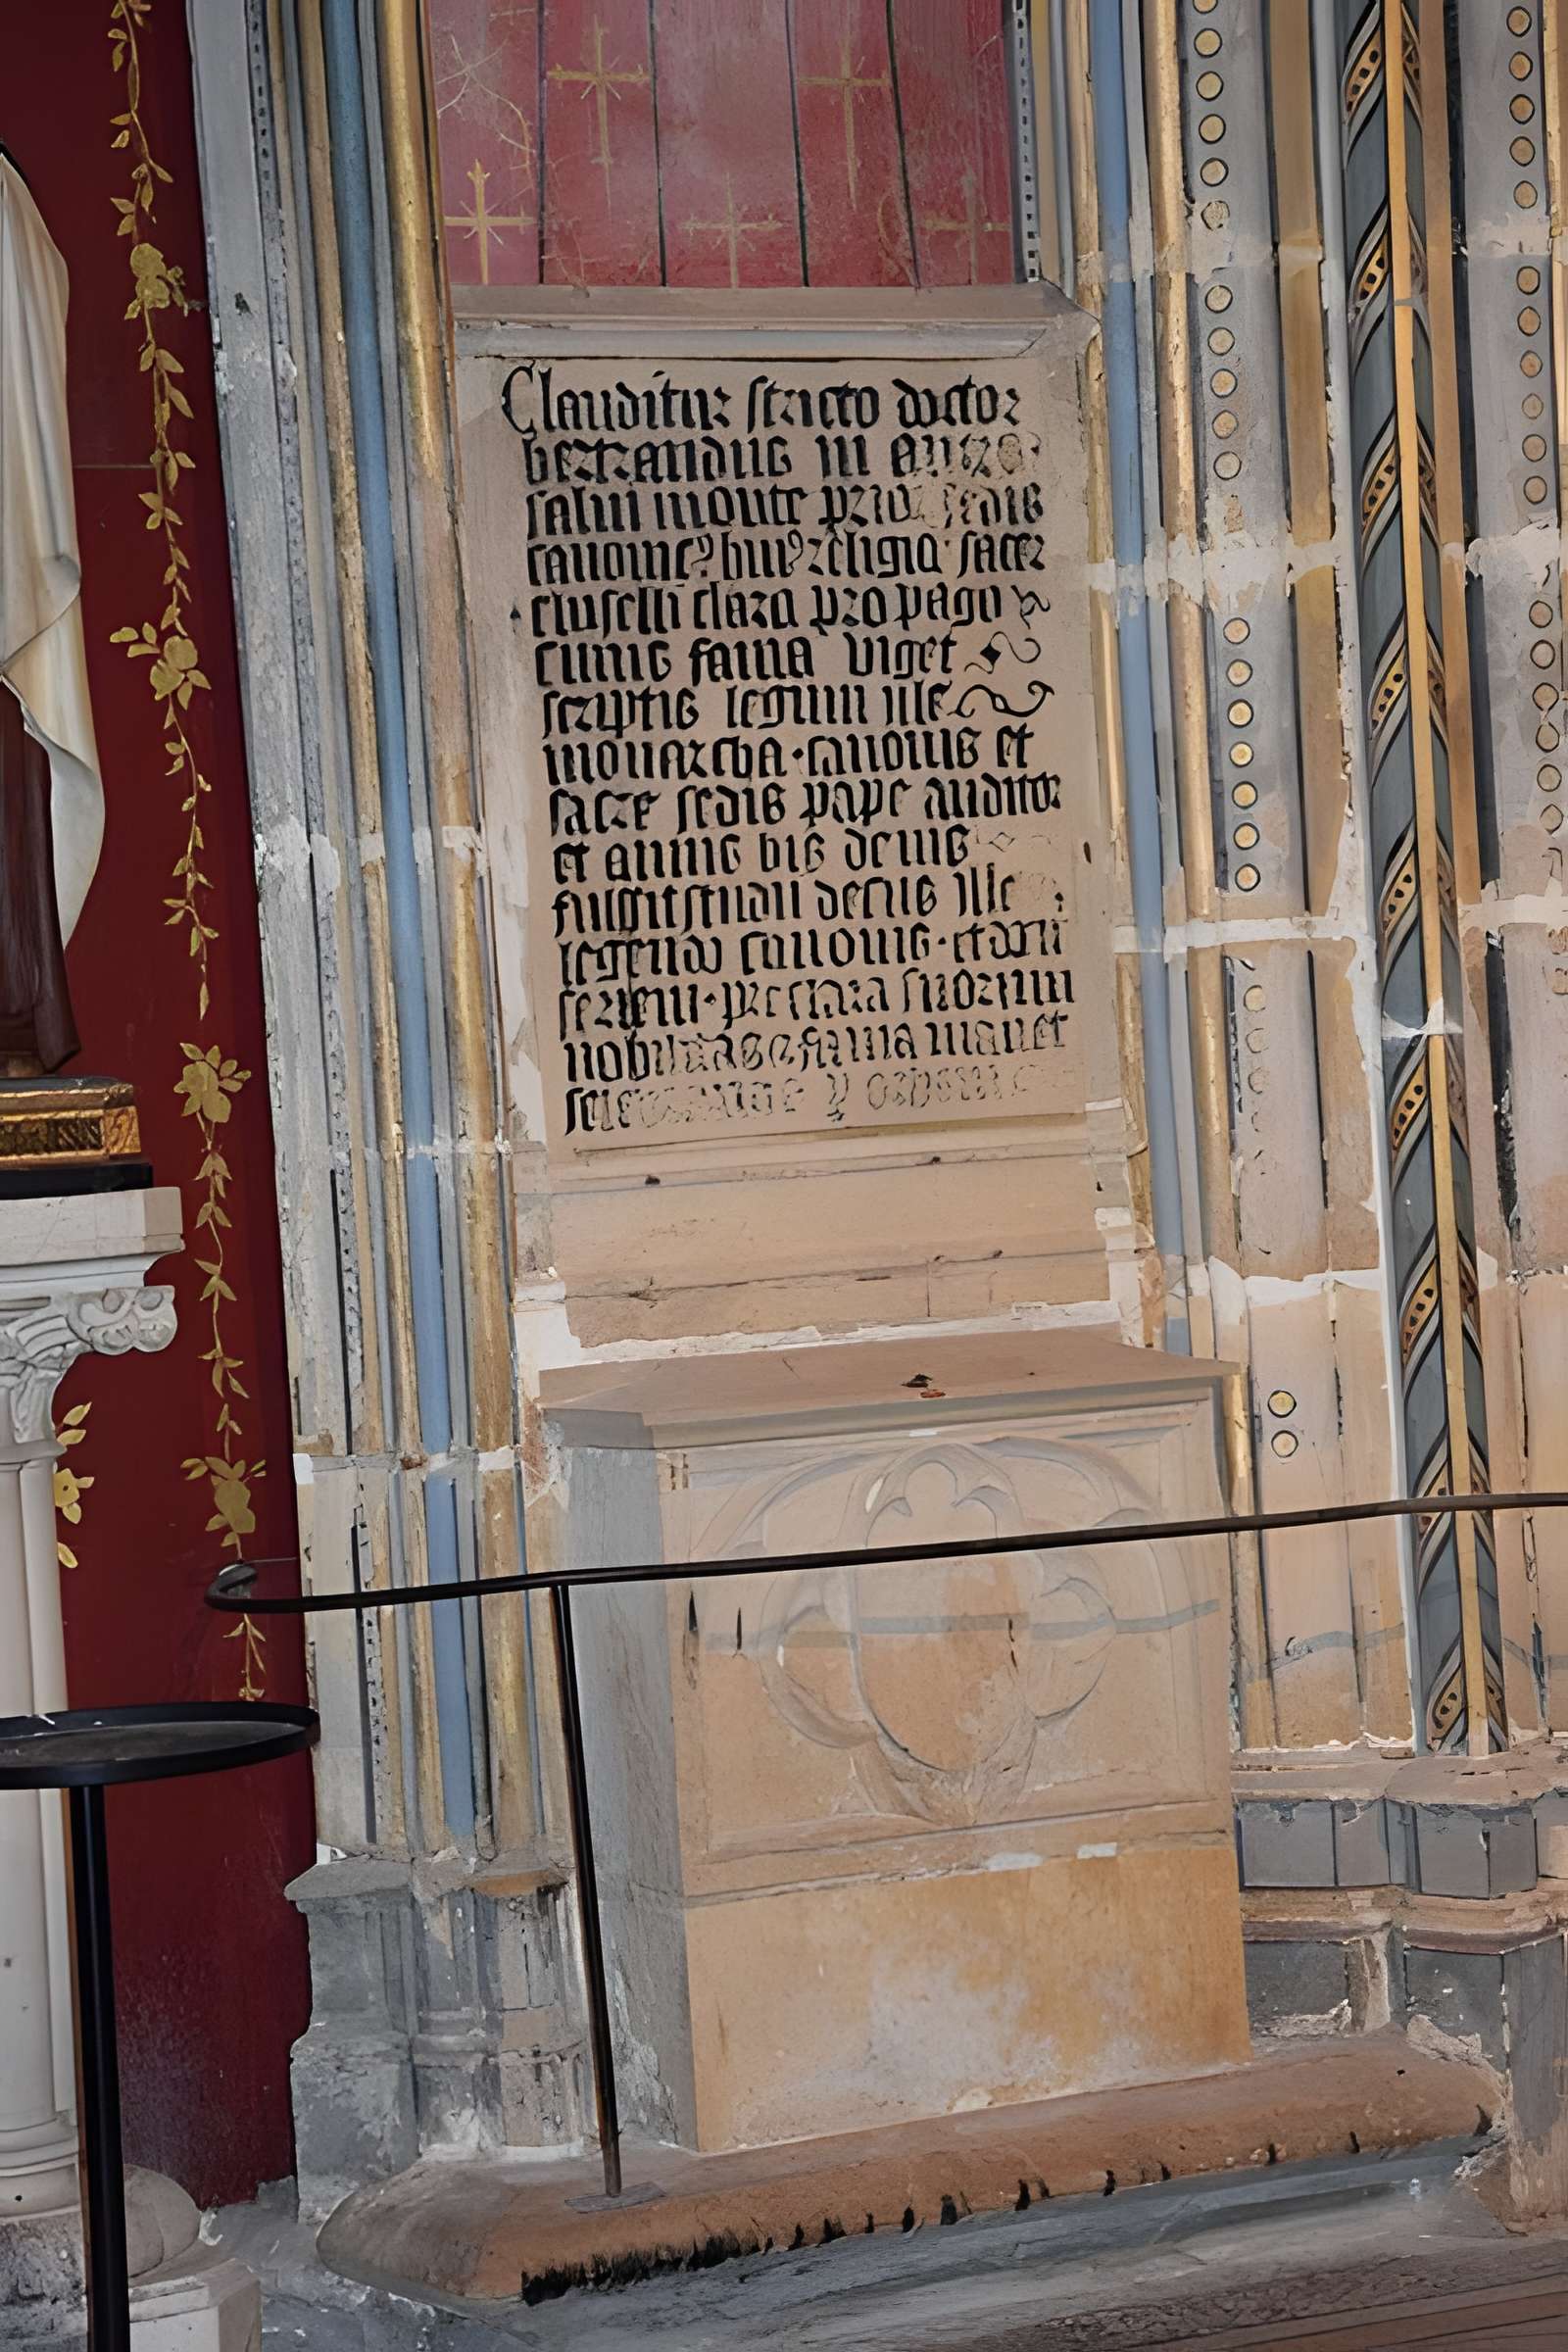 Clauditur stricto doctor
bertrandus in antro
salui monte prior sedis
canonic⁹ hui⁹ religio sacer
cluselli clara propago
cunis fama viget
scriptis legum ille
monarcha · canonis et
sacre sedis pape auditor
et annis bis denis
fulsit studii decus ille
legendo canonis · et
seriem · preclara suorum
nobilitas fama manet